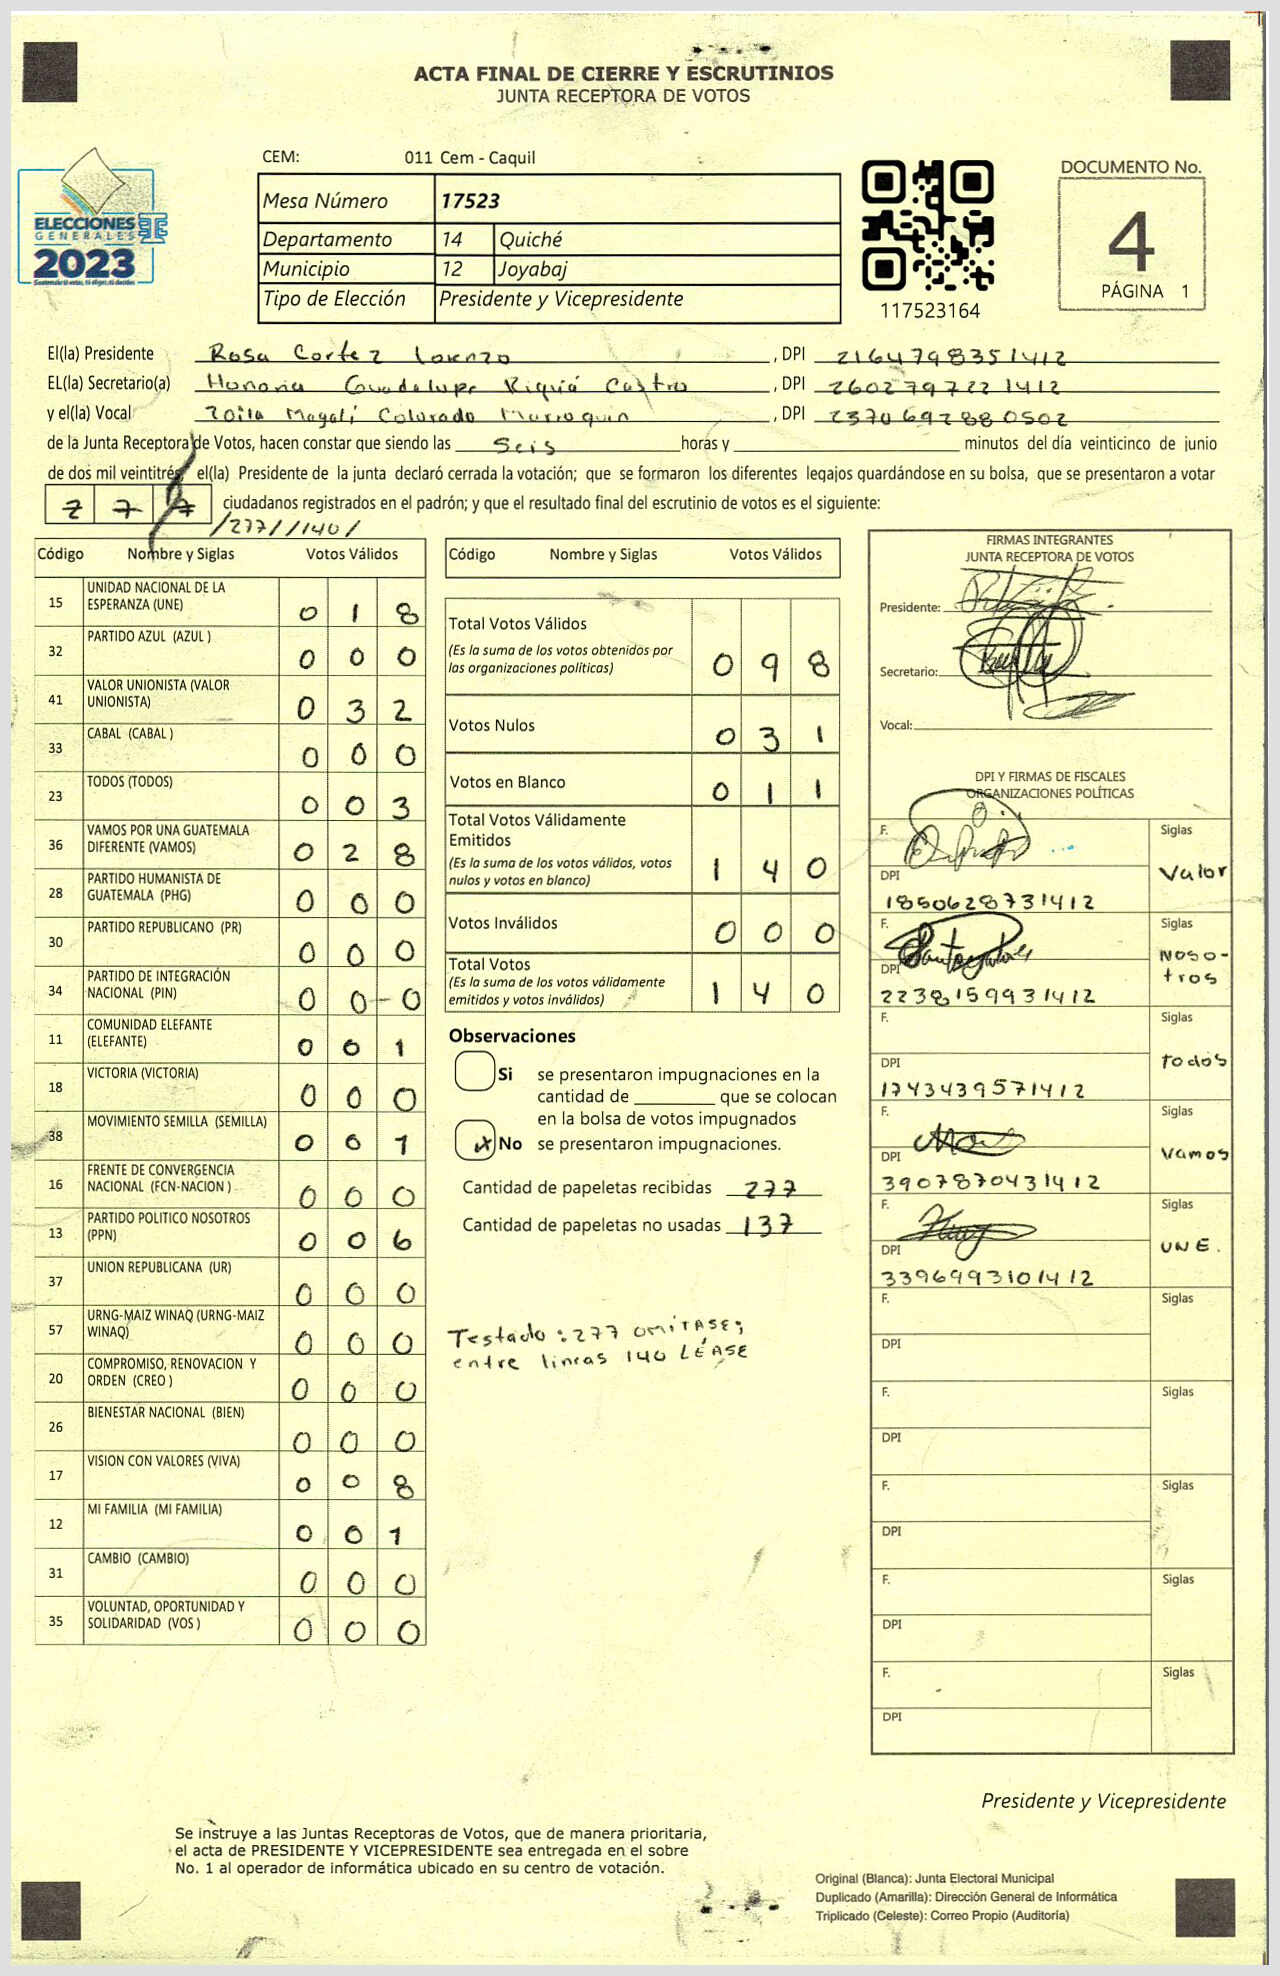 ACTA FINAL DE CIERRE Y ESCRUTINIOS
JUNTA RECEPTORA DE VOTOS
CEM: 011 Cem - Caquil
ELECCIONES
GENERALES
2023
Mesa Número 17523
Departamento 14 Quiché
Municipio 12 Joyabaj
Tipo de Elección Presidente y Vicepresidente
117523164
DOCUMENTO No.
4
PÁGINA 1
El(la) Presidente Rosa Cortez Lorenzo, DPI 2164798351412
EL(la) Secretario(a) Honoria Guadalupe Riquiá Castro, DPI 2602797221412
y el(la) Vocal Zoila Magalí Colorado Marroquin, DPI 2370692880502
de la Junta Receptora de Votos, hacen constar que siendo las Seis horas y minutos del día veinticinco de junio
de dos mil veintitrés el(la) Presidente de la junta declaró cerrada la votación; que se formaron los diferentes legajos guardándose en su bolsa, que se presentaron a votar
277 ciudadanos registrados en el padrón; y que el resultado final del escrutinio de votos es el siguiente:
/277//140/
Código Nombre y Siglas Votos Válidos
15 UNIDAD NACIONAL DE LA ESPERANZA (UNE) 0 1 8
32 PARTIDO AZUL (AZUL ) 0 0 0
41 VALOR UNIONISTA (VALOR UNIONISTA) 0 3 2
33 CABAL (CABAL ) 0 0 0
23 TODOS (TODOS) 0 0 3
36 VAMOS POR UNA GUATEMALA DIFERENTE (VAMOS) 0 2 8
28 PARTIDO HUMANISTA DE GUATEMALA (PHG) 0 0 0
30 PARTIDO REPUBLICANO (PR) 0 0 0
34 PARTIDO DE INTEGRACIÓN NACIONAL (PIN) 0 0-0
11 COMUNIDAD ELEFANTE (ELEFANTE) 0 0 1
18 VICTORIA (VICTORIA) 0 0 0
38 MOVIMIENTO SEMILLA (SEMILLA) 0 0 1
16 FRENTE DE CONVERGENCIA NACIONAL (FCN-NACION ) 0 0 0
13 PARTIDO POLITICO NOSOTROS (PPN) 0 0 6
37 UNION REPUBLICANA (UR) 0 0 0
57 URNG-MAIZ WINAQ (URNG-MAIZ WINAQ) 0 0 0
20 COMPROMISO, RENOVACION Y ORDEN (CREO ) 0 0 0
26 BIENESTAR NACIONAL (BIEN) 0 0 0
17 VISION CON VALORES (VIVA) 0 0 8
12 MI FAMILIA (MI FAMILIA) 0 0 1
31 CAMBIO (CAMBIO) 0 0 0
35 VOLUNTAD, OPORTUNIDAD Y SOLIDARIDAD (VOS ) 0 0 0
Código Nombre y Siglas Votos Válidos
Total Votos Válidos
(Es la suma de los votos obtenidos por
las organizaciones politicas) 0 9 8
Votos Nulos 0 3 1
Votos en Blanco 0 1 1
Total Votos Válidamente
Emitidos
(Es la suma de los votos válidos, votos
nulos y votos en blanco) 1 4 0
Votos Inválidos 0 0 0
Total Votos
(Es la suma de los votos válidamente
emitidos y votos inválidos) 1 4 0
Observaciones
Si se presentaron impugnaciones en la
cantidad de que se colocan
en la bolsa de votos impugnados
x No se presentaron impugnaciones.
Cantidad de papeletas recibidas 277
Cantidad de papeletas no usadas 137
Testado: 277 OMÍTASE;
entre lineas 140 LÉASE
FIRMAS INTEGRANTES
JUNTA RECEPTORA DE VOTOS
Presidente:
Secretario:
Vocal:
DPI Y FIRMAS DE FISCALES
ORGANIZACIONES POLÍTICAS
F. Siglas
DPI Valor
1850628731412
F. Siglas
DPI Noso-
tros
2238159931412
F. Siglas
DPI todos
1743439571412
F. Siglas
DPI Vamos
3907870431412
F. Siglas
DPI UNE.
3396993101412
F. Siglas
DPI
F. Siglas
DPI
F. Siglas
DPI
F. Siglas
DPI
F. Siglas
DPI
Presidente y Vicepresidente
Se instruye a las Juntas Receptoras de Votos, que de manera prioritaria,
el acta de PRESIDENTE Y VICEPRESIDENTE sea entregada en el sobre
No. 1 al operador de informática ubicado en su centro de votación.
Original (Blanca): Junta Electoral Municipal
Duplicado (Amarilla): Dirección General de Informática
Triplicado (Celeste): Correo Propio (Auditoría)